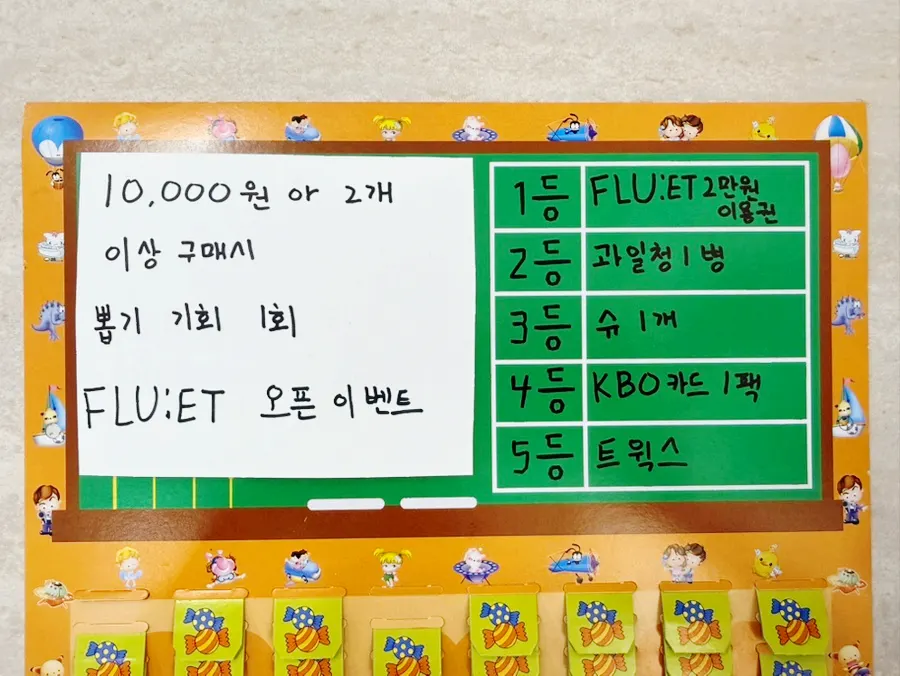 10,000원 or 2개
이상 구매시
뽑기 기회 1회
FLU:ET 오픈 이벤트
1등 FLU:ET 2만원
이용권
2등 과일청 1병
3등 슈 1개
4등 KBO카드 1팩
5등 트윅스